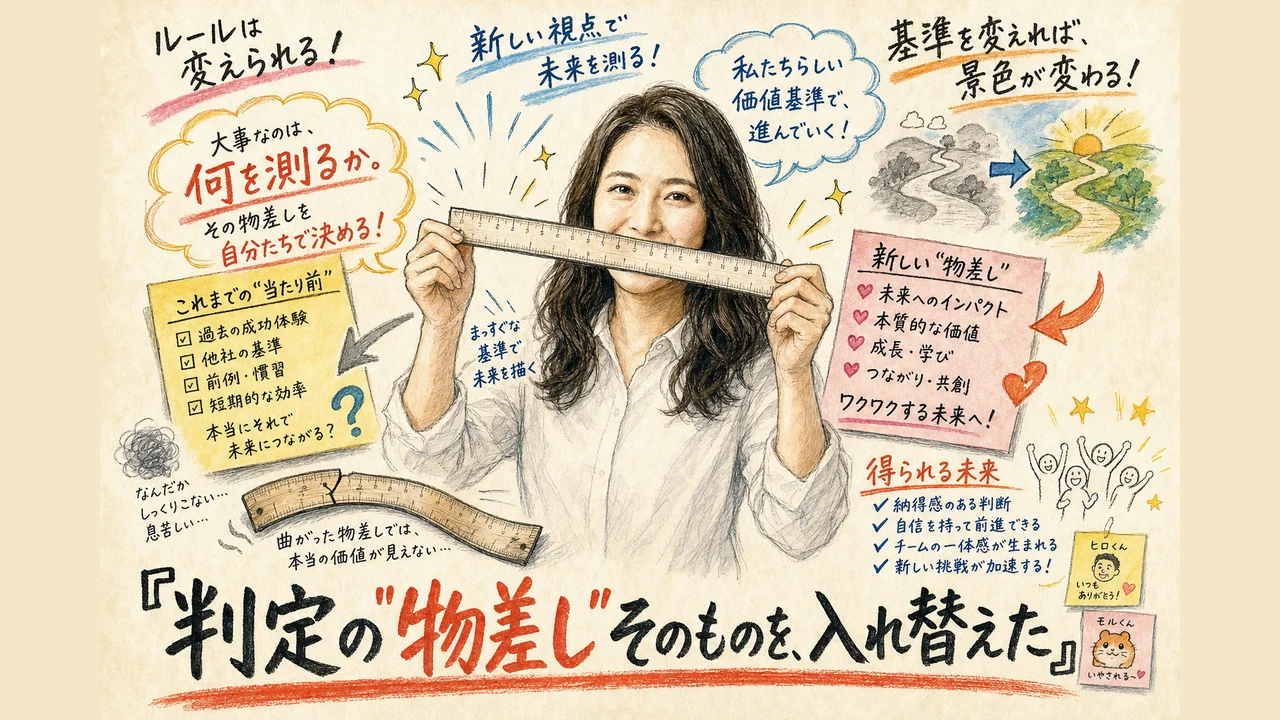 ルールは
変えられる！
新しい視点で
未来を測る！
私たちらしい
価値基準で、
進んでいく！
基準を変えれば、
景色が変わる！
大事なのは、
何を測るか。
その物差しを
自分たちで決める！
これまでの"当たり前"
過去の成功体験
他社の基準
前例・慣習
短期的な効率
本当にそれで
未来につながる？
?
まっすぐな
基準で
未来を描く
新しい"物差し"
未来へのインパクト
本質的な価値
成長・学び
つながり・共創
ワクワクする未来へ！
なんだか
しっくりこない…
息苦しい…
曲がった物差しでは、
本当の価値が見えない…
得られる未来
納得感のある判断
自信を持って前進できる
チームの一体感が生まれる
新しい挑戦が加速する！
ヒロくん
いつも
ありがとう！
モルくん
いやされる〜
『判定の"物差し"そのものを、入れ替えた』